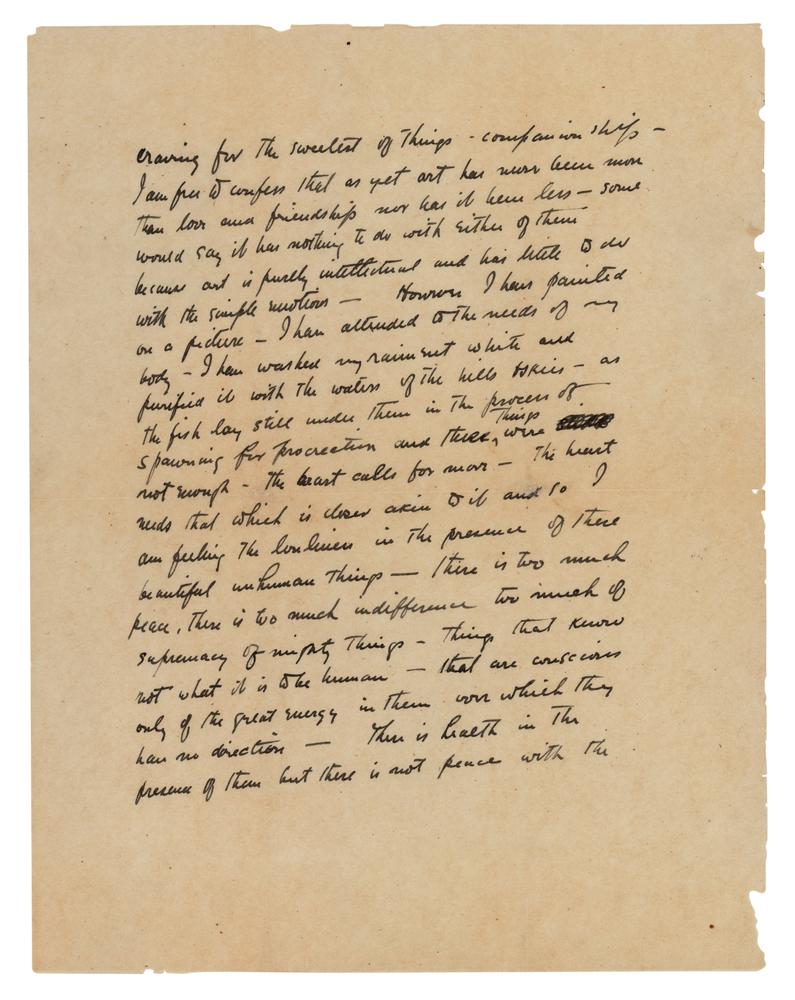 craving for the sweetest of things - companionship -
I am free to confess that as yet art has never been more
than love and friendship nor has it been less - some
would say it has nothing to do with either of them
because art is purely intellectual and has little to do
with the simple emotions - However I have painted
on a picture - I have attended to the needs of my
body - I have washed my raiment white and
purified it with the waters of the hills &skies - as
the fish lay still under them in the process of
spawning for procreation and these things were
not enough - the heart calls for more - The heart
needs that which is closer akin to it and so I
am feeling the lonliness in the presence of these
beautiful unhuman things - there is too much
peace, there is too much indifference too much of
supremacy of mighty things - things that know
not what it is to be human - that are conscious
only of the great energy in them over which they
have no direction - There is health in the
presence of them but there is not peace with the